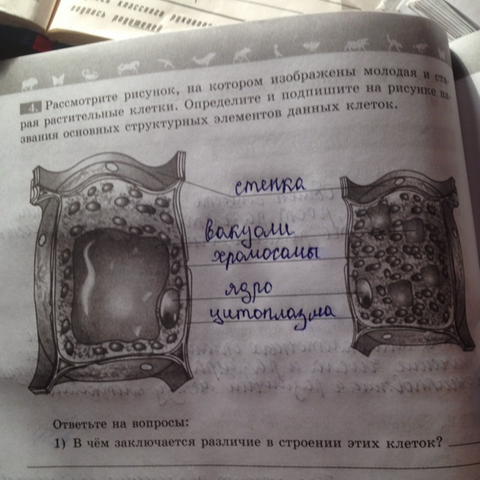 классного руковод
подпись родителей
4. Рассмотрите рисунок, на котором изображены молодая и ста
рая растительные клетки. Определите и подпишите на рисунке на-
звания основных структурных элементов данных клеток.
стенка
вакуоли
хромосомы
ядро
цитоплазма
Ответьте на вопросы:
1) В чём заключается различие в строении этих клеток?